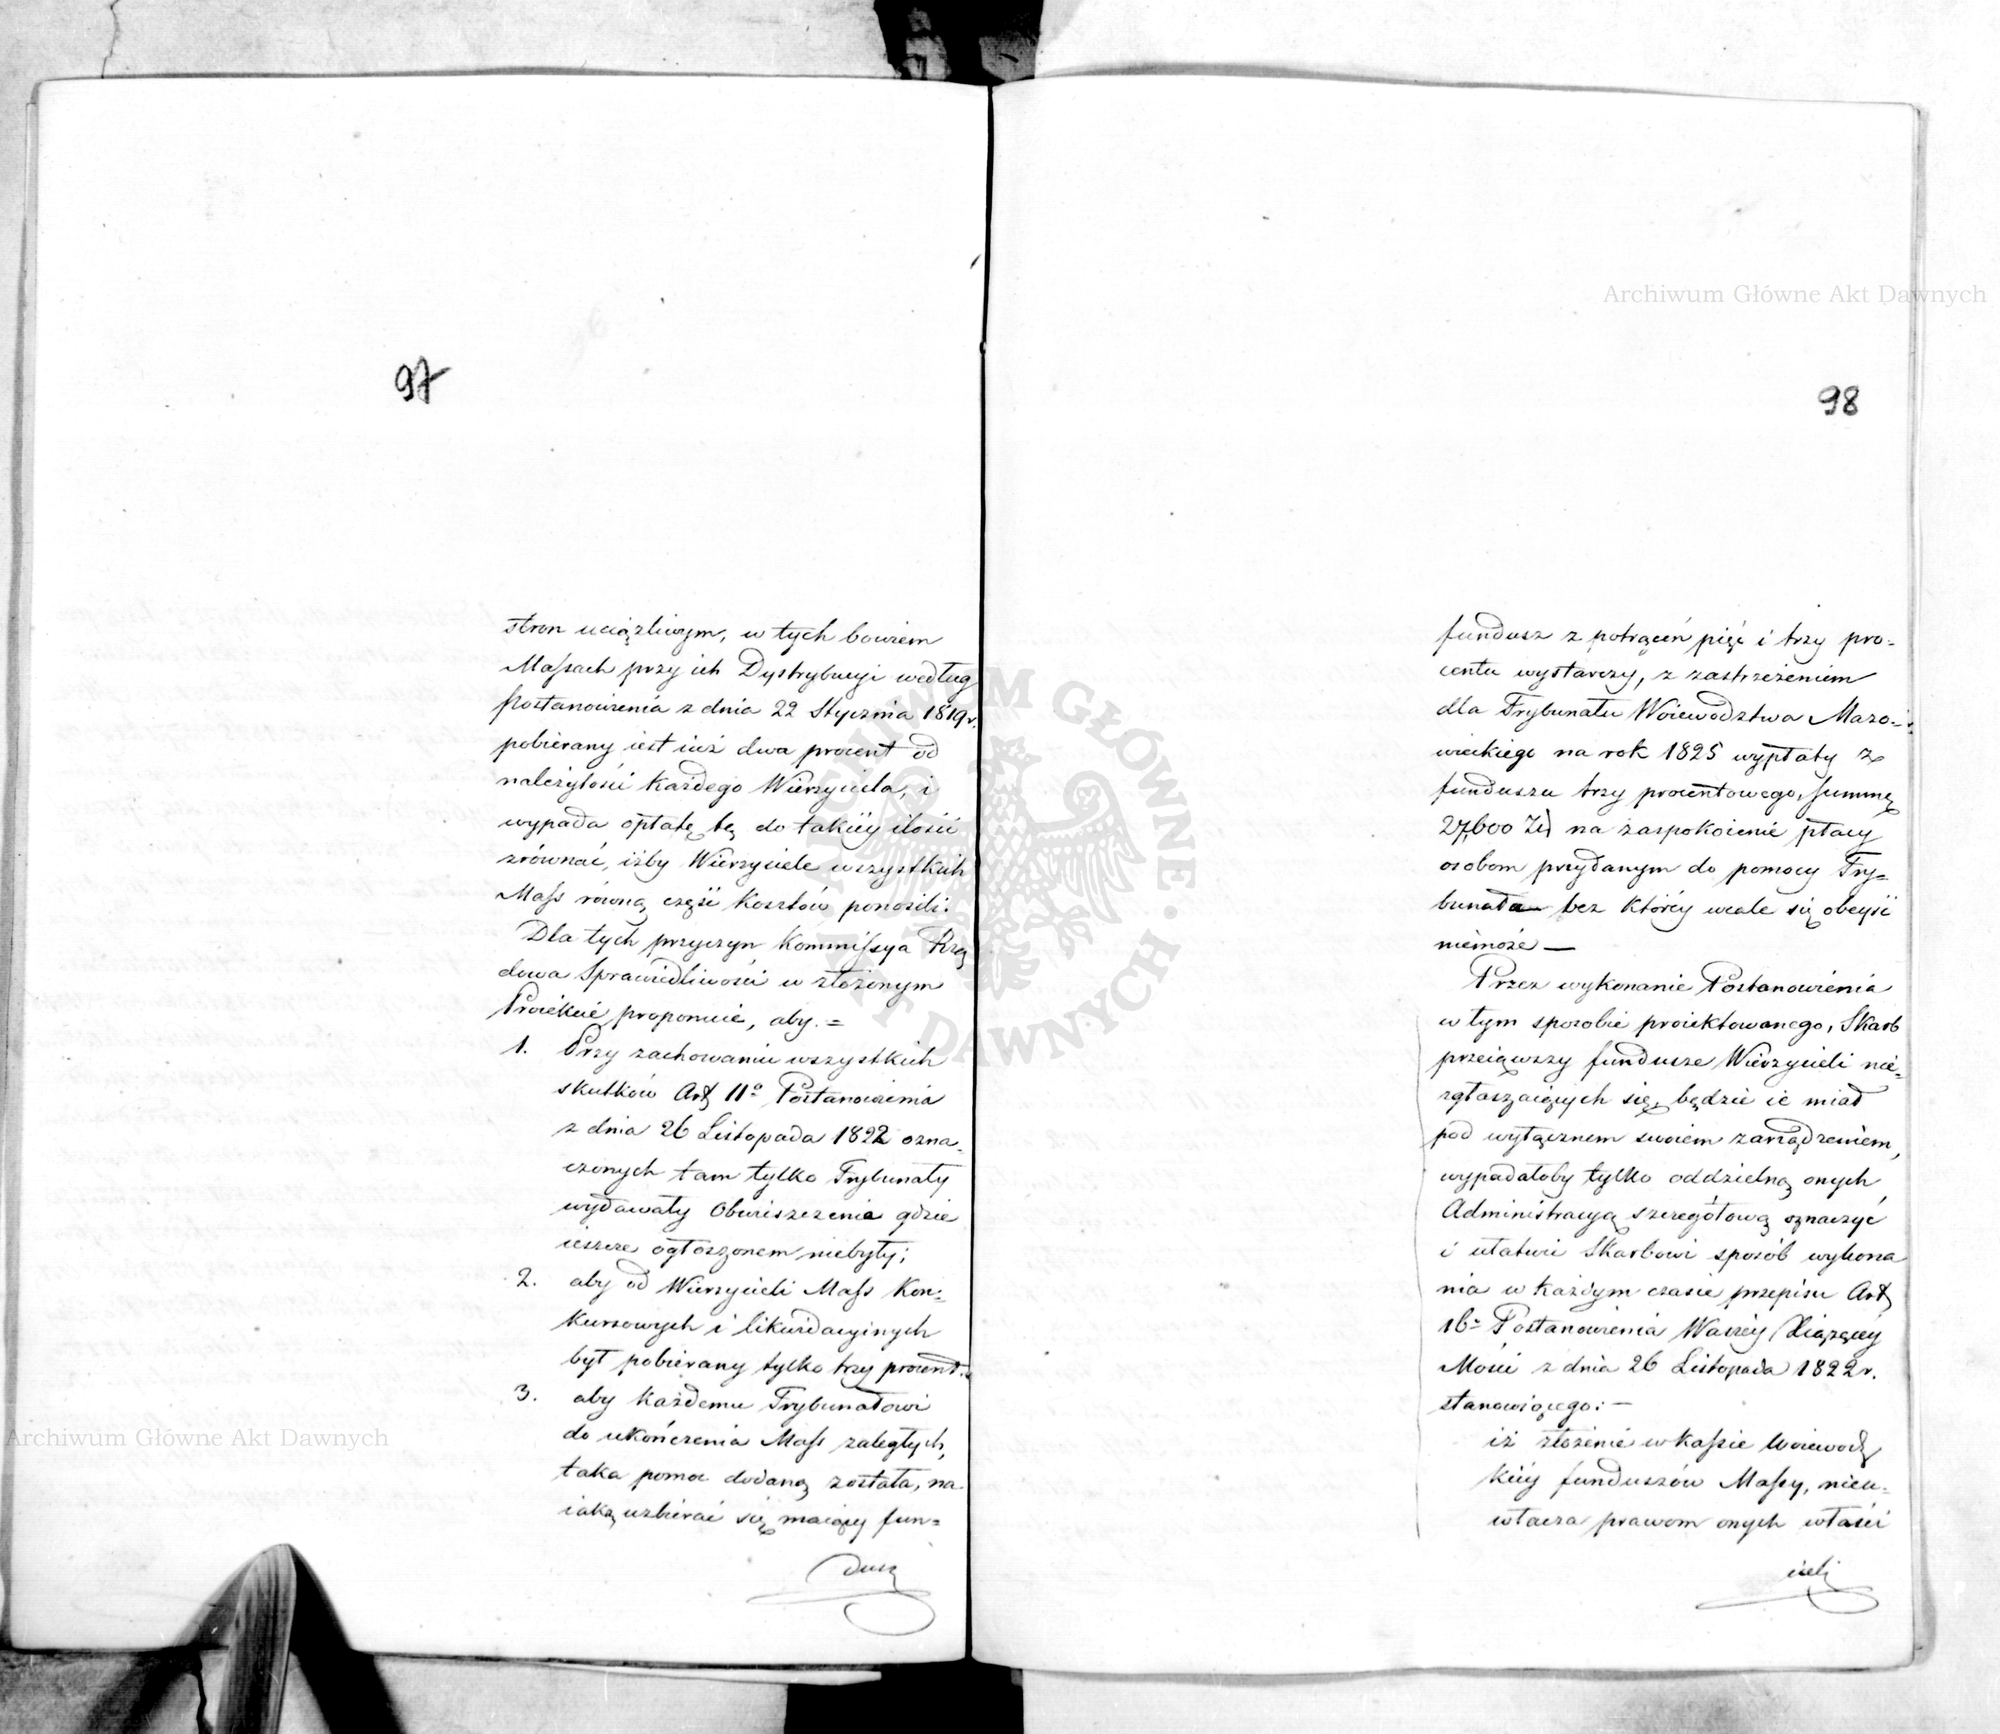 97
stron uciążliwym, w tych bowiem
Massach przy ich Dystrybucyi według
Postanowienia z dnia 22 Stycznia 1819 r.
pobierany iest iuż dwa procent od
należytości każdego Wierzyciela, i
wypada opłatę tę do takiéy ilości
zrównać, iżby Wierzyciele wszystkich
Mass równą część kosztów ponosili.
Dla tych przyczyn Kommissya Rzą
dowa Sprawiedliwości w złożonym
Proiekcie proponuie, aby. =
1. Przy zachowaniu wszystkich
skutków Art 11º Postanowienia
z dnia 26 Listopada 1822 ozna-
czonych tam tylko Trybunały
wydawały Obwieszczenia gdzie
ieszcze ogłoszonem niebyły;
2. aby od Wierzycieli Mass Kon-
kursowych i likwidacyinych
był pobierany tylko trzy procent.
3. aby każdemu Trybunałowi
do ukończenia Mass zaległych,
taka pomoc dodaną została, na
iaką uzbierać się maiący fun=
dusz
98
fundusz z potrąceń pięć i trzy pro-
centu wystarczy, z zastrzeżeniem
dla Trybunału Woiewództwa Mazo-
wieckiego na rok 1825 wypłaty z
funduszu trzy procentowego, summę
27,600 Zł na zaspokoienie płacy
osobom przydanym do pomocy Try=
bunała bez któréy wcale się obeyść
niemoże —
Przez wykonanie Postanowienia
w tym sposobie proiektowanego, Skarb
przeiąwszy fundusze Wierzycieli nie-
zgłaszaiących się, będzie ie miał
pod wyłącznem swoiem zarządzeniem,
wypadałoby tylko oddzielną onych
Administracyą szczegółową oznaczyć
i ułatwi Skarbowi sposób wykona
nia w każdym czasie przepisu Art
16º Postanowienia Waszéy Xiążęcéy
Mości z dnia 26 Listopada 1822 r.
stanowiącego: —
iż złożenie w Kassie Woiewodz
kiéy funduszów Massy, nieu-
włacza prawom onych właści
cieli
Archiwum Główne Akt Dawnych
Archiwum Główne Akt Dawnych
ARCHIWUM GŁÓWNE AKT DAWNYCH